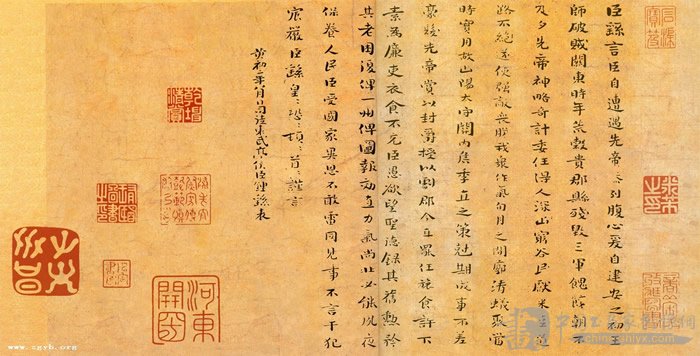 臣繇言臣自遭遇先帝忝列腹心爰自建安之初王
師破賊關東時年荒穀貴郡縣殘毀三軍餽饟朝不
及夕先帝神略奇計委任得人深山窮谷民獻米豆道
路不絕遂使強敵喪膽我眾作氣旬月之間廓清蟻聚當
時實用故山陽太守關內侯季直之策剋期成事不差
豪髮先帝賞以封爵授以劇郡今直罷任旅食許下
素為廉吏衣食不充臣愚欲望聖德錄其舊勳矜
其老困復俾一州俾圖報效直力氣尚壯必能夙夜
保養人民臣受國家異恩不敢雷同見事不言干犯
宸嚴臣繇皇〻恐〻頓〻首〻謹言
黃初二年八月日司徒東武亭侯臣鍾繇表
乾坤清賞
河東
www.zgyb.org